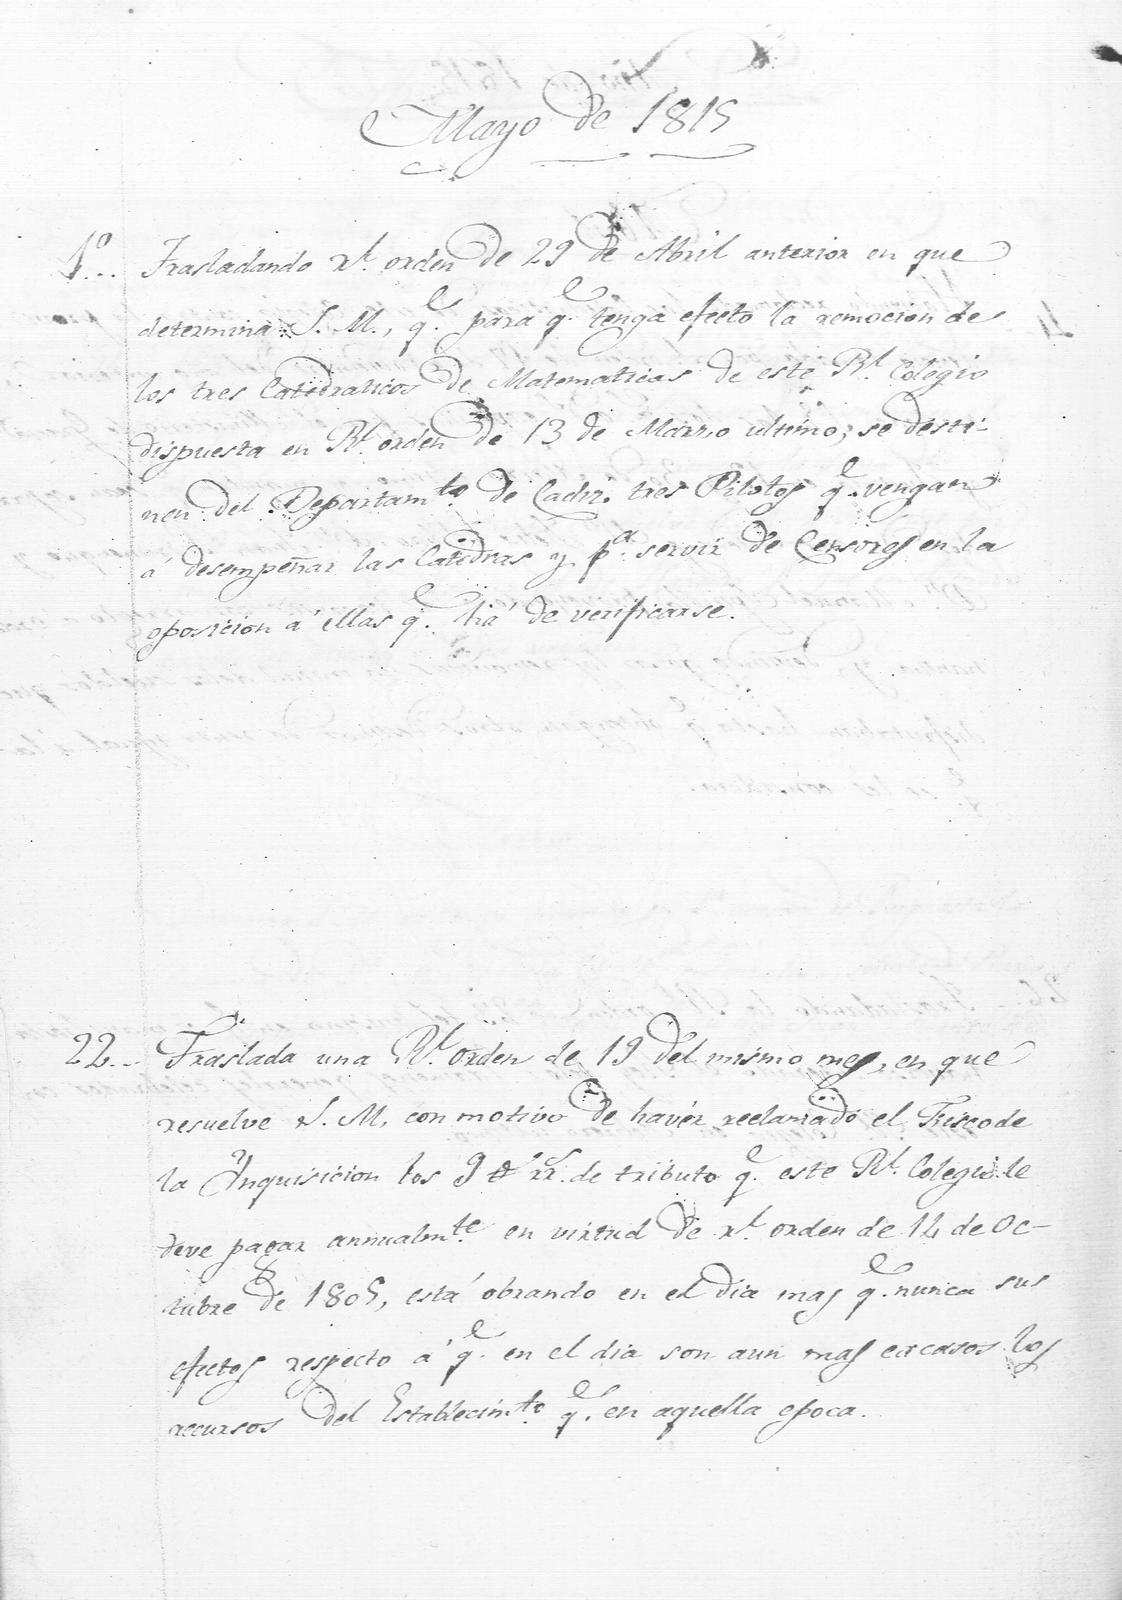 Mayo de 1815
1º... Trasladando rl. orden de 29 de Abril anterior en que
determina S. M., qe. para qe. tenga efecto la remocion de
los tres Catedraticos de Matematicas de este Rl. Colegio
dispuesta en Rl. orden de 13 de Marzo ultimo; se desti-
nen del Departamto. de Cadiz. tres Pilotos qe. vengan
á desempeñar las Catedras y pa. servir de Censores en la
oposicion á ellas qe. há de verificarse.
22... Traslada una Rl. orden de 19 del mismo mes, en que
resuelve S. M. con motivo de havér reclamado el Fisco de
la Inquisicion los 9 rr. de tributo qe. este Rl. Colegio le
deve pagar annualmte. en virtud de rl. orden de 14 de Oc-
tubre de 1805, está obrando en el dia mas qe. nunca sus
efectos respecto á qe. en el dia son aun mas escasos los
recursos del Establecimto. qe. en aquella epoca.